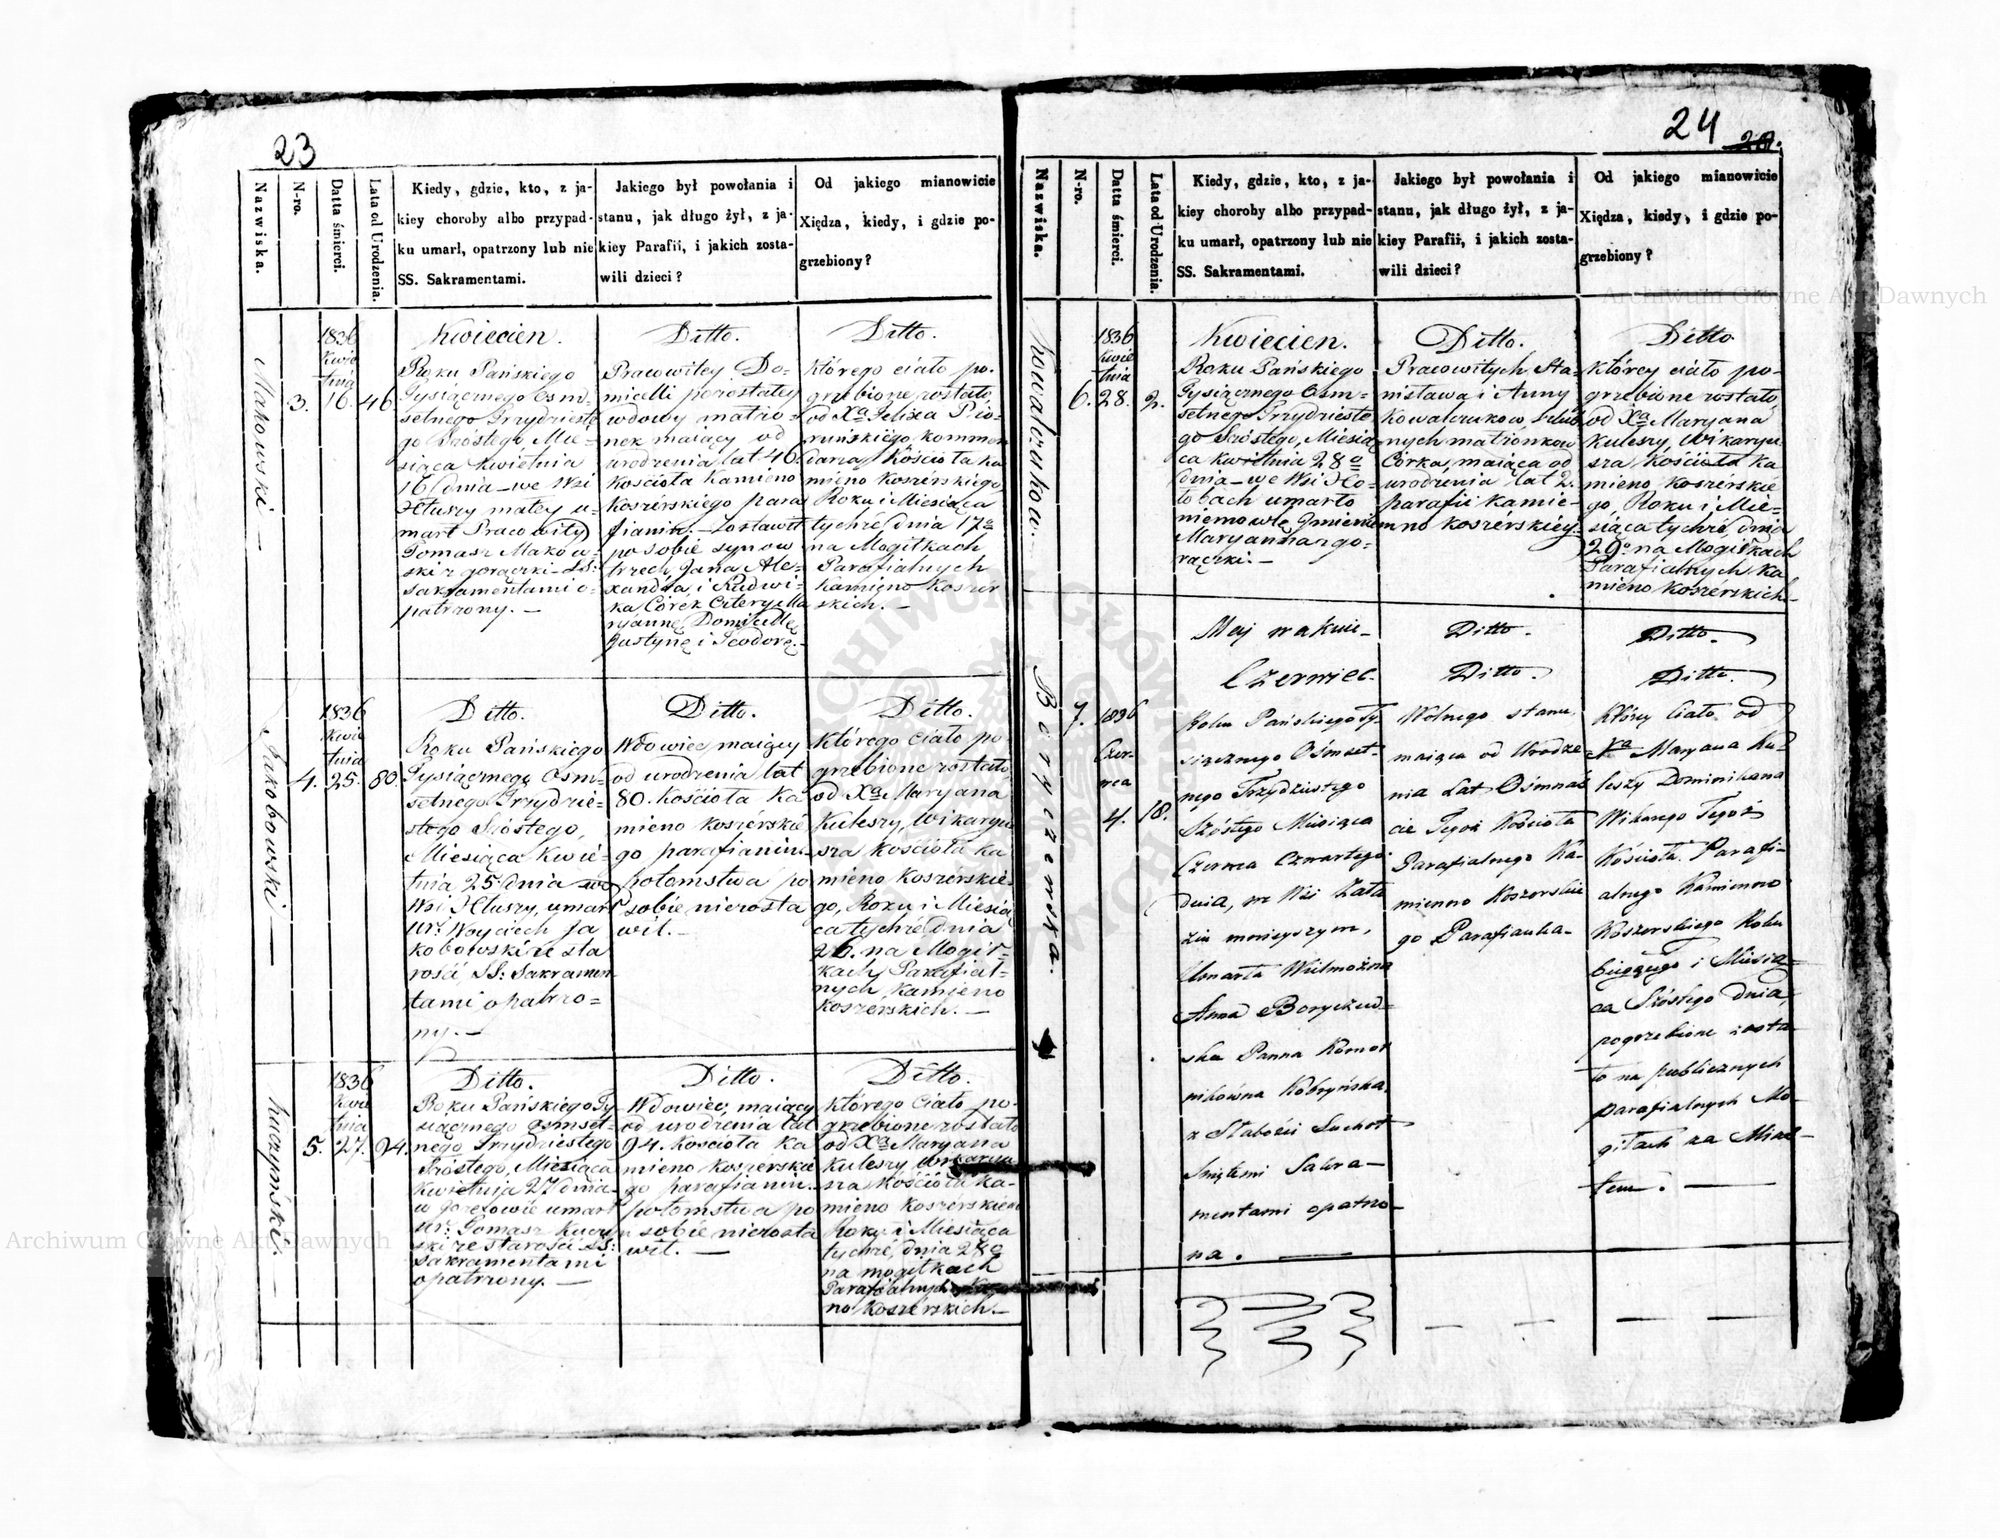 23
Nazwiska.
N-ro.
Datta śmierci.
Lata od Urodzenia.
Kiedy, gdzie, kto, z ja-
kiey choroby albo przypad-
ku umarł, opatrzony lub nie
SS. Sakramentami.
Jakiego był powołania i
stanu, jak długo żył, z ja-
kiey Parafii, i jakich zosta-
wili dzieci?
Od jakiego mianowicie
Xiędza, kiedy, i gdzie po-
grzebiony?
Makowski —
3.
1836
Kwie
tnia
16.
46
Kwiecien.
Roku Pańskiego
Tysiącznego Osm-
setnego Trzydzieste
go Szóstego Mie-
siąca Kwietnia
16 dnia we Wsi
Hłuszy małey u-
marł Pracowity
Tomasz Makow-
ski z gorączki SS:
Sakramentami o-
patrzony. —
Ditto.
Pracowitey Do-
micelli pozostałey
wdowy małżo-
nek maiący od
urodzenia lat 46.
Kościoła Kamieno
Koszerskiego para
fianin. — Zostawił
po sobie synow
trzech Jana Ale-
xandra i Ludwi-
ka Córek Cztery Ma
ryannę Domicellę
Justynę i Teodorę.
Ditto.
Którego ciało po-
grzebione zostało
od Xa Felixa Pio-
ruńskiego kommen
darza Kościoła Ka
mieno Koszerskiego
Roku i Miesiąca
tychże dnia 17o
na Mogiłkach
Parafialnych
Kamieno Koszer
skich. —
Jakobowski —
4.
1836
Kwie
tnia
25.
80.
Ditto.
Roku Pańskiego
Tysiącznego Osm-
setnego Trzydzie-
stego Szóstego,
Miesiąca Kwie-
tnia 25 dnia we
Wsi Hłuszy, umarł
Ur: Woyciech Ja
kobowski ze sta
rości SS: Sakramen
tami opatrzo-
ny. —
Ditto.
Wdowiec maiący
od urodzenia lat
80. Kościoła Ka
mieno Koszérskie
go parafianin
potomstwa po
sobie niezosta
wił. —
Ditto.
Którego Ciało po
grzebione zostało
od Xa Maryana
Kuleszy, Wikaryu
sza Kościoła Ka
mieno Koszérskie
go, Roku i Miesią
ca tychże dnia
26. na Mogił-
kach Parafial-
nych Kamieno
Koszérskich. —
Kuczyński. —
5.
1836
Kwie
tnia
27.
94.
Ditto.
Roku Pańskiego Ty
siącznego Osmset-
nego Trzydziestego
Szóstego, Miesiąca
Kwietnia 27 dnia
umarł
Ur: Tomasz Kuczyń
ski ze starości SS:
Sakramentami
opatrzony. —
Ditto.
Wdowiec, maiący
od urodzenia lat
94. Kościoła Ka
mieno Koszérskie
go parafianin
potomstwa po
sobie niezosta
wił. —
Ditto.
Którego Ciało po-
grzebione zostało
od Xa Maryana
Kuleszy Wikaryu
sza Kościoła Ka-
mieno Koszérskiego
Roku i Miesiąca
tychże dnia 28o
na mogiłkach
Parafialnych
no Koszérskich. —
24
Nazwiska.
N-ro.
Datta śmierci.
Lata od Urodzenia.
Kiedy, gdzie, kto, z ja-
kiey choroby albo przypad-
ku umarł, opatrzony lub nie
SS. Sakramentami.
Jakiego był powołania i
stanu, jak długo żył, z ja-
kiey Parafii, i jakich zosta-
wili dzieci?
Od jakiego mianowicie
Xiędza, kiedy, i gdzie po-
grzebiony?
Kowalczukow. —
6.
1836
Kwie
tnia
28.
2.
Kwiecien.
Roku Pańskiego
Tysiącznego Osm-
setnego Trzydzieste
go Szóstego, Miesią
ca Kwietnia 28o
dnia we Wsi Ho-
łobach umarło
niemowlę Imieniem
Maryanna z go-
rączki. —
Ditto.
Pracowitych Sta-
nisława i Anny
Kowalczukow Szlub
nych małżonkow
Córka, maiąca od
urodzenia lat 2.
parafii Kamie-
no Koszérskiey.
Ditto
Którey ciało po-
grzebione zostało
od Xa Maryana
Kuleszy, Wikaryu
sza Kościoła Ka
mieno Koszérskie
go, Roku i Mie-
siąca tychże, dnia
29o na Mogiłkach
Parafialnych Ka
mieno Koszérskich. —
Maj wakuie
Ditto.
Ditto.
Boryczewska.
7.
1836
Czer-
wca
4.
18.
Czerwiec.
Roku Pańskiego Ty-
siącznego Ośmset-
nego Trzydziestego
Szóstego Miesiąca
Czerwca Czwartego
dnia, we Wsi Zała
ziu mnieyszym,
Umarła Wielmożna
Anna Boryczew-
ska Panna Komor
nikówna Kobryńska
z Słabości Suchot
Świętemi Sakra-
mentami opatrzo-
na. —
Ditto.
Wolnego stanu,
maiąca od Urodze-
nia Lat Ośmnaś
cie Tegoż Kościoła
Parafialnego Ka-
mienno Koszerskie
go Parafianka.
Ditto.
Którey Ciało od
Xa Maryana Ku-
leszy Dominikana
Wikarego Tegoż
Kościoła Parafi-
alnego Kamienno
Koszerskiego Roku
bieżącego i Miesią-
ca Szóstego dnia,
pogrzebione zosta
ło na publicznych
parafialnych Mo-
giłach za Mias-
tem. —
Archiwum Główne Akt Dawnych
Archiwum Główne Akt Dawnych
ARCHIWUM GŁÓWNE AKT DAWNYCH